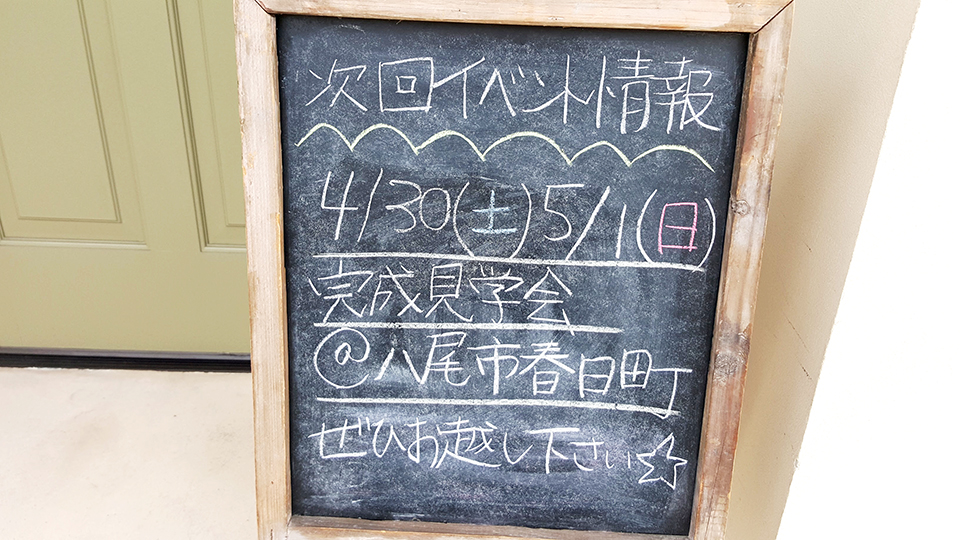 次回イベント情報
4/30(土)5/1(日)
完成見学会
@八尾市春日町
ぜひお越し下さい☆